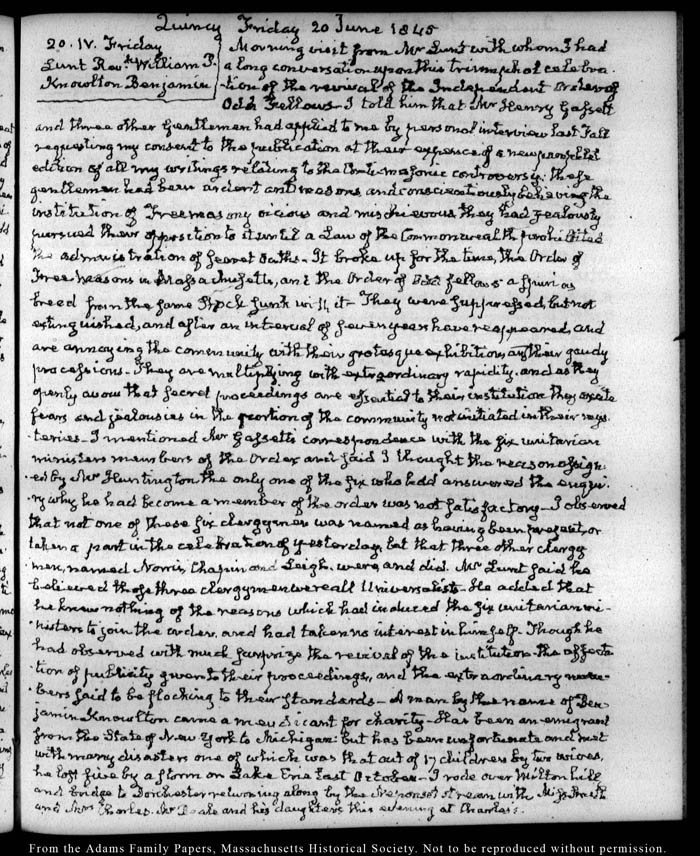 Quincy Friday 20 June 1845
20. IV. Friday
Lunt Revd. William P.
Knowlton Benjamin
Morning visit from Mr Lunt with whom I had
a long conversation upon this triumphal celebra-
-tion of the revival of the Independent Order of
Odd Fellows. I told him that Mr Henry Gassett
and three other Gentlemen had applied to me by personal interview last Fall
requesting my consent to the publication at their expence of a new
edition of all my writings relating to the Anti-masonic controversy. these
gentlemen had been ardent antimasons and conscientiously believing the
institution of Freemasonry vicious and mischievous they had zealously
pursued their opposition to it until a Law of the Commonwealth prohibited
the administration of secret oaths- It broke up for the time, the Order of
Free Masons in Massachusetts, and the Order of Odd fellows a spurious
breed from the same stock sunk with it- They were suppressed but not
extinguished, and after an interval of seven years have reappeared, and
are annoying the community with their grotesque exhibitions, and their gaudy
processions- They are multiplying with extraordinary rapidity, and as they
openly avow that secret proceedings are essential to their institution they excite
fears and jealousies in the portion of the community not initiated in their mys-
-teries- I mentioned Mr Gassett's correspondence with the six unitarian
ministers members of the Order and said I thought the reason assign-
-ed by Mr Huntington the only one of the six who had answered the enqui-
-ry why he had become a member of the order was not satisfactory- I observed
that not one of these six clergymen was named as having been present, or
taken a part in the celebration of yesterday but that three other clergy
men, named Norris, Chapin and Leigh. were, and did. Mr Lunt said he
believed those three clergymen were all Universalists- He added that
he knew nothing of the reasons which had induced the six unitarian mi-
-nisters to join the order, and had taken no interest in himself- Though he
had observed with much surprize the revival of the institution- the affecta-
-tion of publicity given to their proceedings, and the extraordinary num-
-bers said to be flocking to their standards- A man by the name of Ben-
jamin Knowlton came a mendicant for charity- Has been an emigrant
from the State of New York to Michigan but has been unfortunate and met
with many disasters one of which was that out of 17 children by two wives,
he lost five by a storm on Lake Erie last October- I rode over Milton hill
and bridge to Dorchester returning along by the Neponset stream with Miss Smith
and Mrs Charles. Mr Beale and his daughters this evening at Charles's.
From the Adams Family Papers, Massachusetts Historical Society. Not to be reproduced without permission.